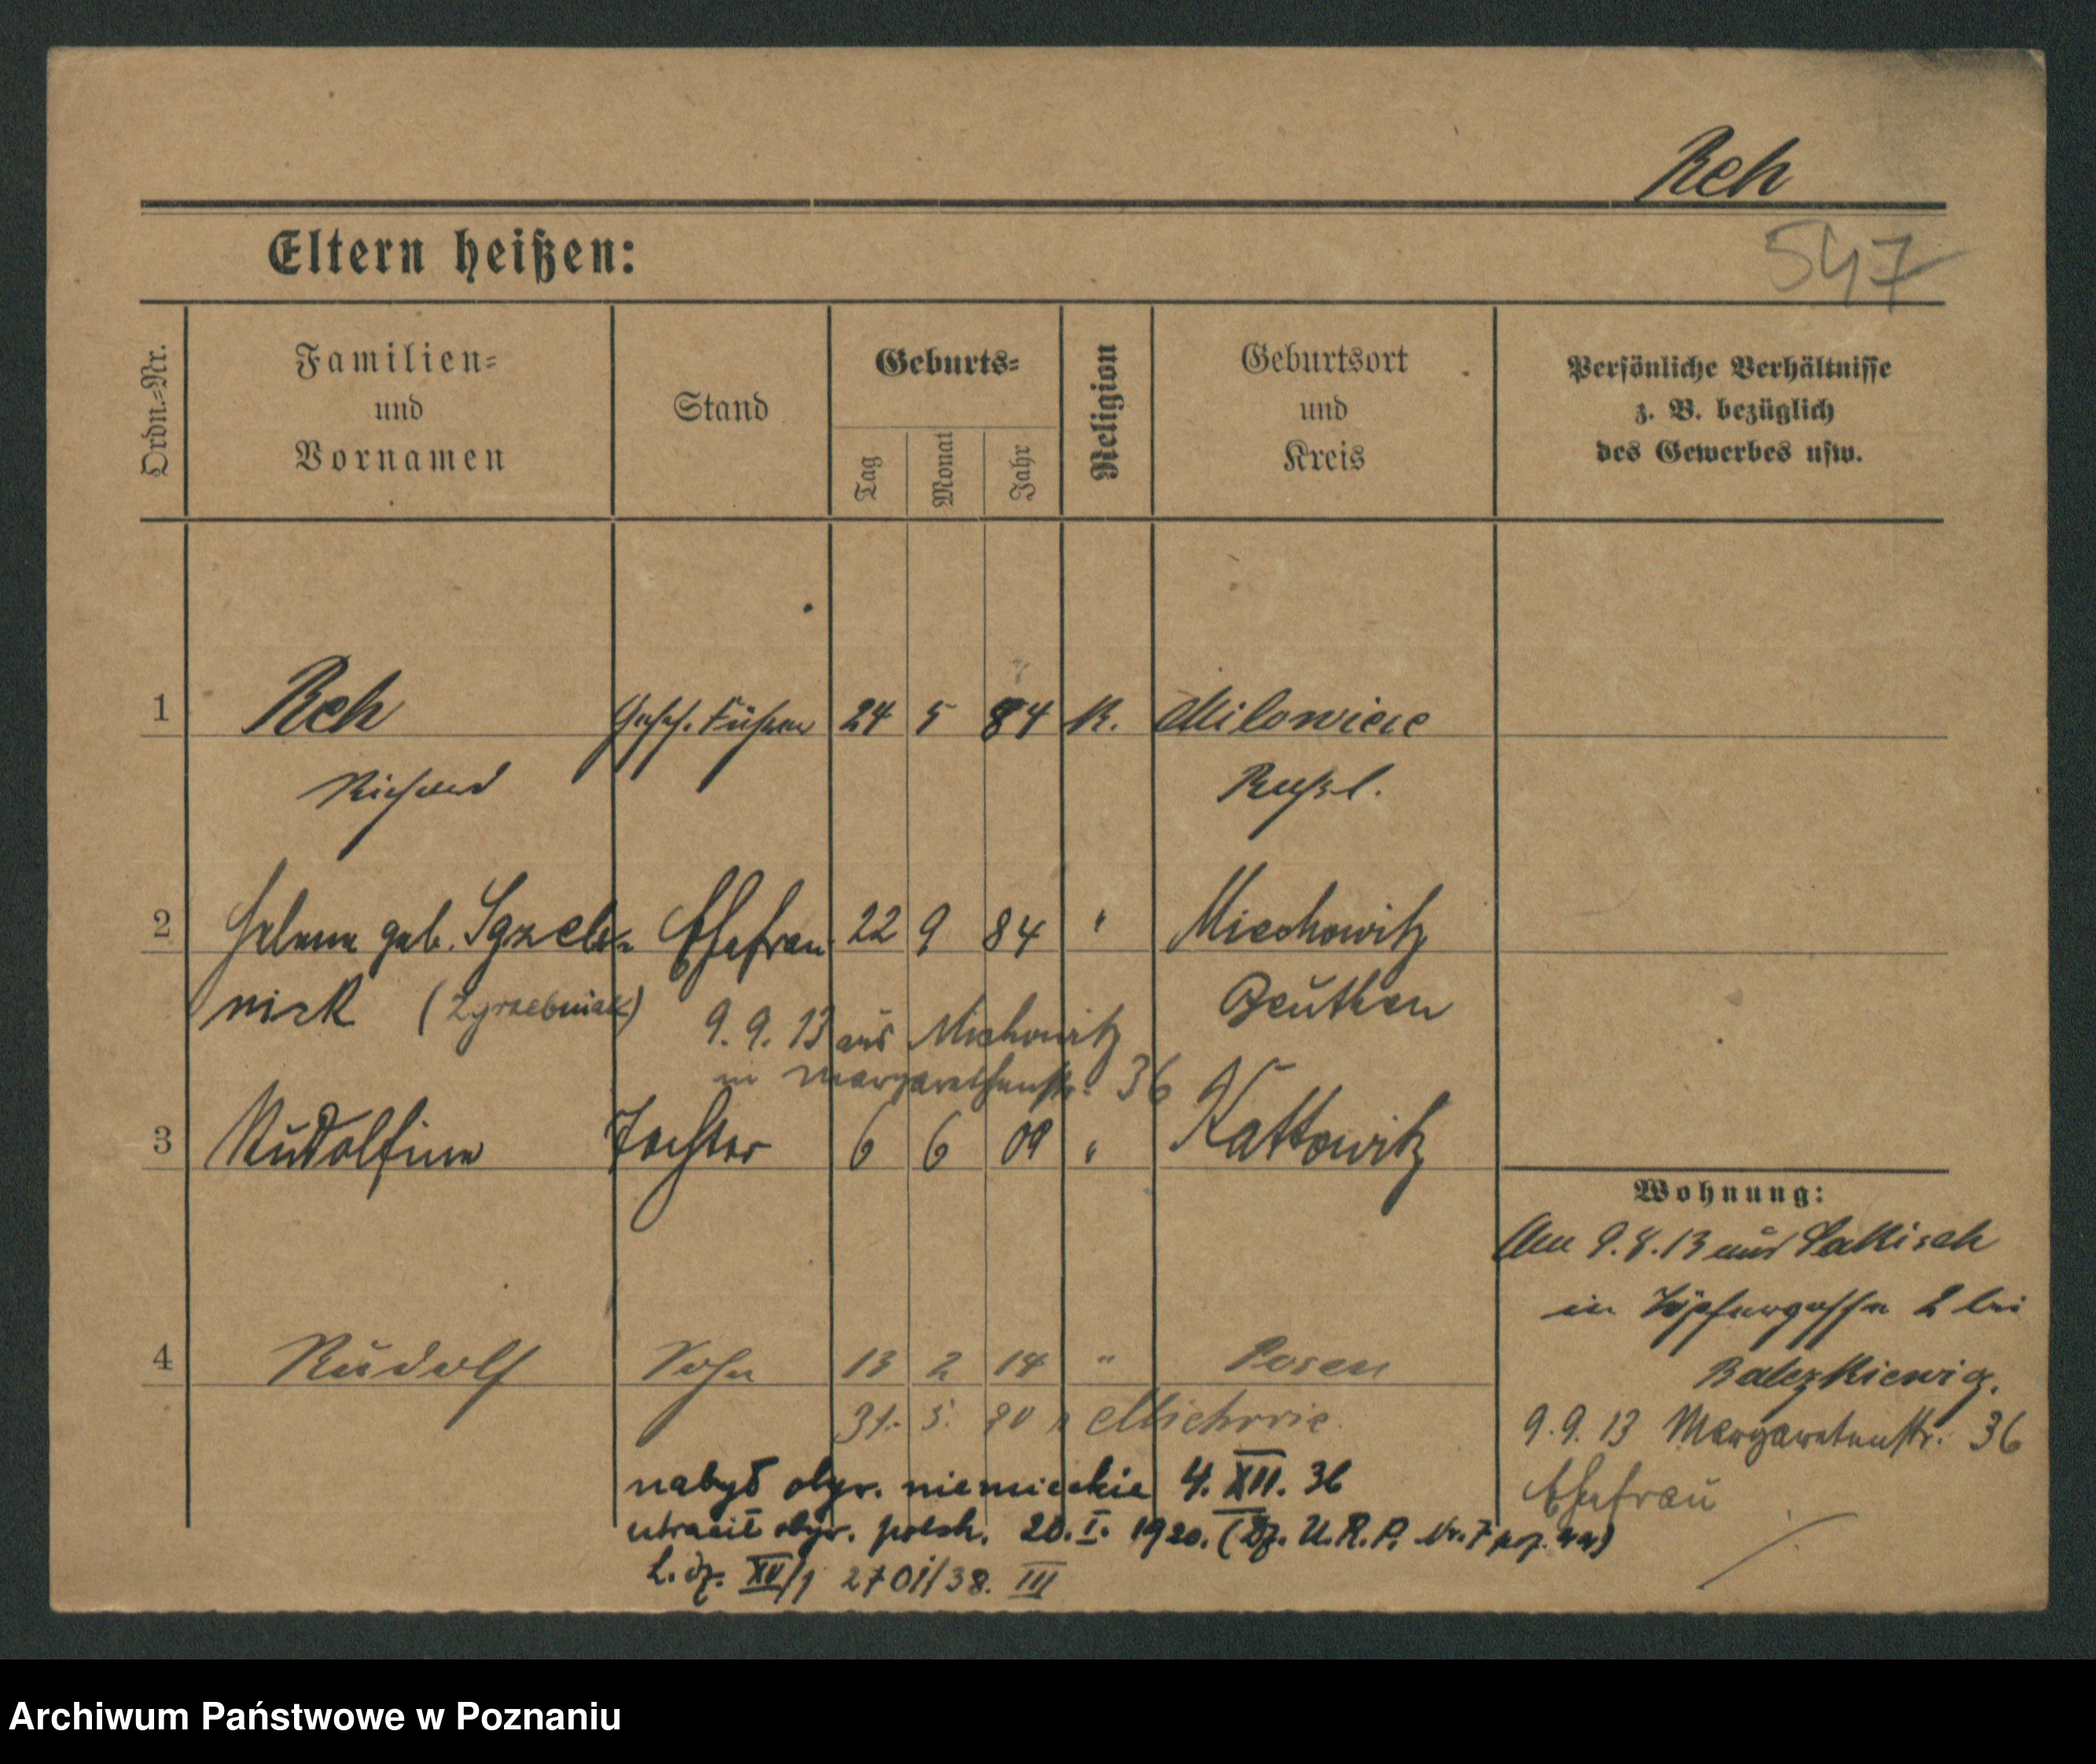 Reh
547
Eltern heißen:
Ordn.-Nr.
Familien-
und
Vornamen
Stand
Geburts-
Tag
Monat
Jahr
Religion
Geburtsort
und
Kreis
Persönliche Verhältnisse
z. B. bezüglich
des Gewerbes usw.
1 Reh Gesch. Führer 24 5 84 K. Milowiece
Richard Russl.
2 Helene geb. Sgzeb- Ehefrau 22 9 84 " Miechowitz
niok (Zgrzebniak) Beuthen
9. 9. 13 aus Miechowitz
in Margarethenstr. 36
3 Rudolfine Tochter 6 6 09 " Kattowitz
Wohnung:
Am 9.8.13 aus
in Töpfergasse 2 bei
4 Rudolf Sohn 13 2 14 " Posen
31. 5.
9.9. 13 Margaretenstr. 36
Ehefrau
nabył obyw. niemieckie 4. XII. 36
utracił obyw. polsk. 20. I. 1920. (Dz. U.R.P. Nr. 7 poz. 44)
L. dz. XV/1 2701/38. III
Archiwum Państwowe w Poznaniu